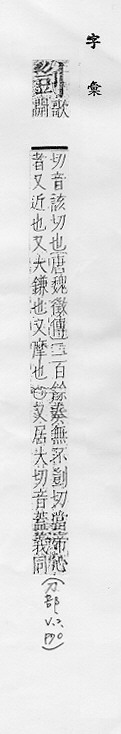 字彙
剴
歌
開
切音該切也唐魏徵傳二百餘奏無不剴切當帝心
者又近也又大鎌也又摩也○又居大切音蓋義同
(刀部